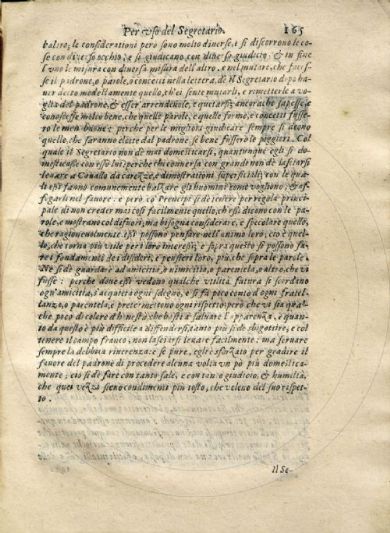 Per uso del Segretario. 165
baltro; le considerationi però sono molto diuerse, e si discorrono le co-
se con diuerso occhio, e si giudicano, con altro giudicio, & in fine
l'uno le misura con diuersa misura dell'altro, e nel mutare, che facesse
se il padrone, o parole, o concetti nella lettera, dè il Segretario dopo ha-
uer detto modestamente quello, ch'ei sente mutarli, e rimetterle a vo
glia del padrone, & esser arrendeuole, e quetarsi: ancorache sapesse, e
conoscesse molto bene, che quelle parole, e quelle forme, e concetti fus-
sero le men buone; perche per le migliori giudicare sempre si deono
quelle, che saranno elette dal padrone, se bene fussero le peggiori. Col
quale il Segretario non dè mai domesticarsi, quantunque egli si do-
mesticasse con esso lui: perche chi conuersa con grandi non dè lasciarsi
leuare a cauallo da carezze, e dimostrationi superficiali; con le qua-
li essi sanno communemente balzare gli huomini come vogliono, & af-
fogarli nel fauore: e però co' Prencipi si dè tenere per regola princi-
pale di non creder mai così facilmente quello, ch'essi dicono con le pa-
role, e mostrano col di fuori; ma bisogna considerare, e specolare quello,
che ragioneuolmente essi possono pensare nell'animo loro, cioè quel-
lo, che torna più vtile per i loro interessi; e sopra questo si possono fa-
re i fondamenti de i desideri, e pensieri loro, più che sopra le parole.
Nè si dè guardare ad amicitia, o nimicitia, o parentela, o altro, che vi
fusse: perche doue essi vedono qualche vtilità futura si scordano
ogn'amicitia, s'acqueta ogni sdegno, e si fà poco conto d'ogni fratel-
lanza, o parentela; e pretermettono ogni rispetto; però che vi sia qual-
che poco di colore d'honestà che basti a saluare l'apparenza, quan-
to da quello è più difficile a diffendersi, tanto più si dè sbigottire, e col
tenere il campo franco, non lasciarsi leuare facilmente; ma seruare
sempre la debbita riuerenza: e se pure, egli è sforzato per gradire il
fauore del padrone di procedere alcuna volta vn pò più domestica-
mente; ciò si dè fare con tanto sale, e con tanto giudicio, & humiltà,
che quei vezzi sieno condimenti più tosto, che veleno del suo rispet-
to.
Il Se-